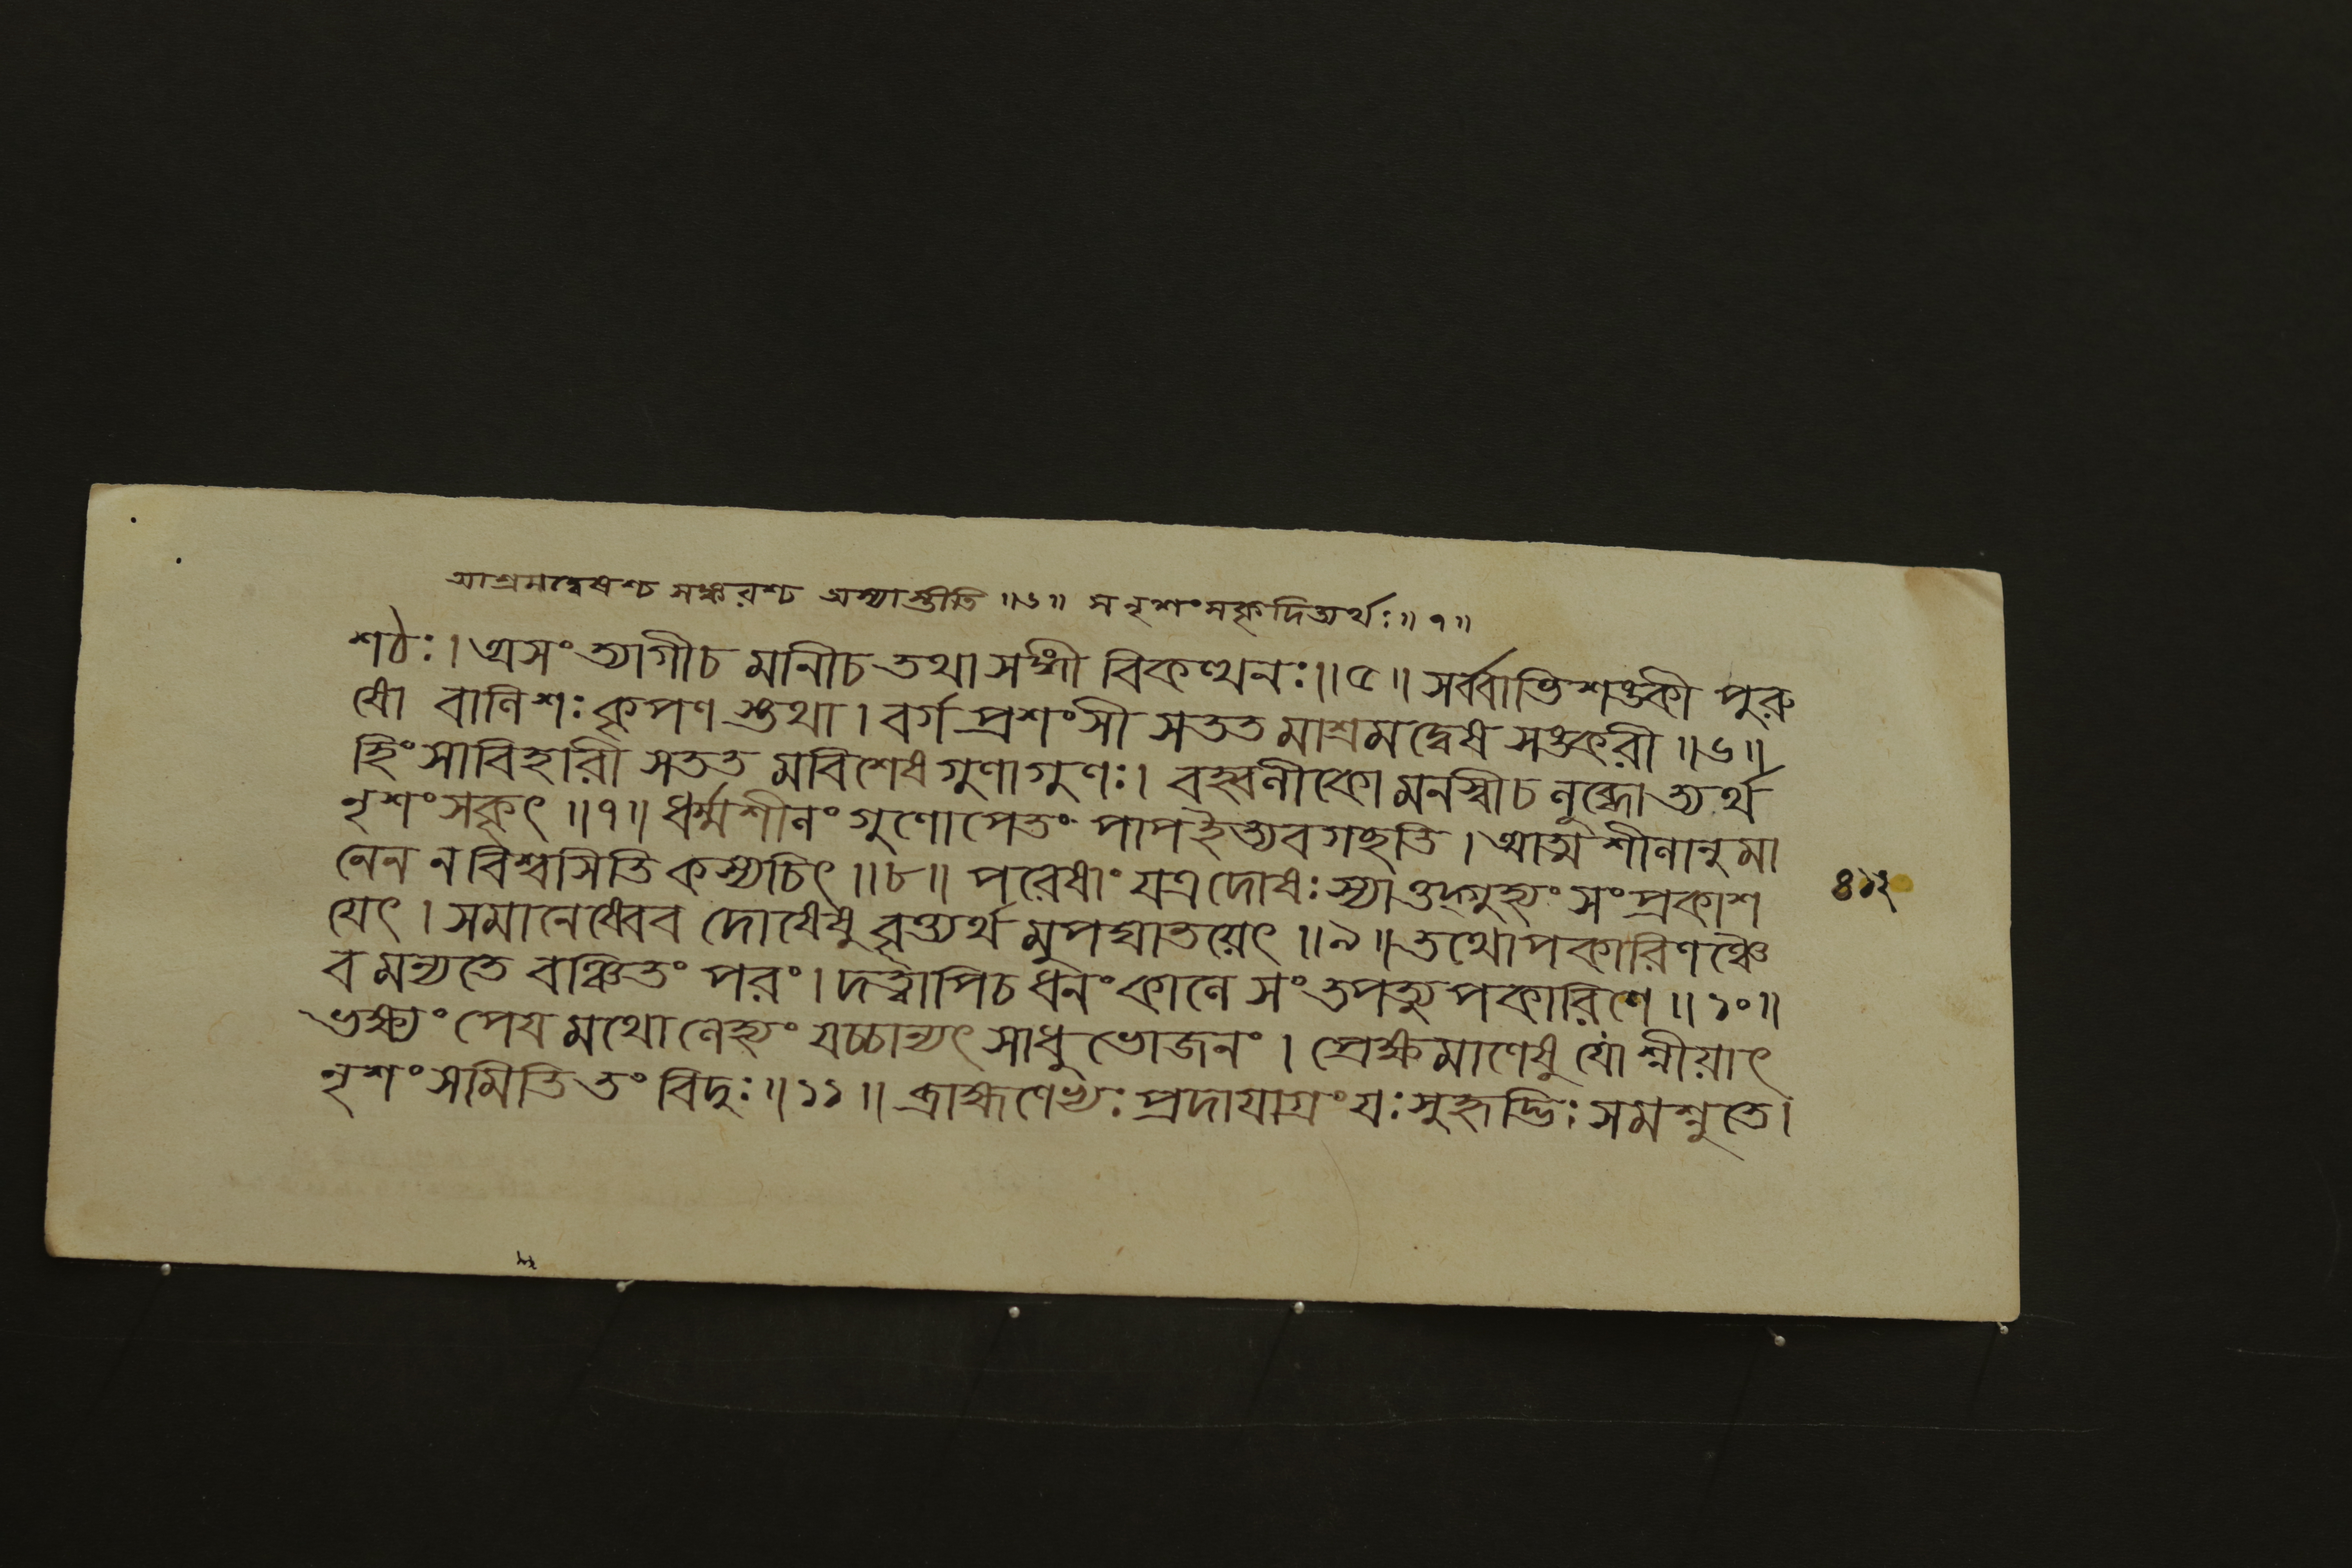 আশ্রমদ্বেষশ্চ সঙ্করশ্চ অস্যাস্তীতি ॥৬॥ স নৃশংসকৃদিত্যর্থঃ ॥ ৭ ॥
শঠঃ । অসংত্যাগীচ মানীচ তথা সঙ্গী বিকত্থনঃ ॥ ৫ ॥ সর্ব্বাতিশঙ্কী পুরু
ষো বালিশঃ কৃপণ স্তথা । বর্গ প্রশংসী সতত মাশ্রমদ্বেষ সঙ্করী ॥ ৬ ॥
হিংসাবিহারী সতত মবিশেষ গুণাগুণঃ । বহ্বলীকো মনস্বীচ লুব্ধোত্যর্থ
নৃশংসকৃৎ ॥ ৭ ॥ ধর্ম্মশীলং গুণোপেতং পাপ ইত্যবগচ্ছতি । আত্মশীলানুমা
নেন ন বিশ্বসিতি কস্যচিৎ ॥ ৮ ॥ পরেষাং যত্র দোষঃ স্যাত্তদ্গুহ্যং সংপ্রকাশ
যেৎ । সমানেষ্বেব দোষেষু বৃত্ত্যর্থ মুপঘাতয়েৎ ॥ ৯ ॥ তথোপকারিণঞ্চৈ
ব মন্যতে বঞ্চিতং পরং । দত্ত্বাপিচ ধনং কালে সংতপত্যুপকারিণে ॥ ১০ ॥
ভক্ষ্যং পেয মথো লেহ্যং যচ্চান্যৎ সাধু ভোজনং । প্রেক্ষমাণেষু যোশ্নীয়াৎ
নৃশংসমিতি তং বিদুঃ ॥ ১১ ॥ ব্রাহ্মণেভ্যঃ প্রদাযাগ্রং যঃ সুহৃদ্ভিঃ সমশ্নুতে ।
৪১২